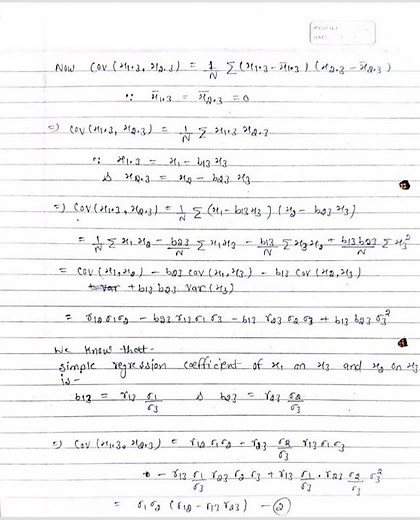 Now Cov (x1.3, x2.3) = 1/N Σ (x1.3 - x̄1.3) (x2.3 - x̄2.3)
∵ x̄1.3 = x̄2.3 = 0
=) Cov (x1.3, x2.3) = 1/N Σ x1.3 x2.3
∵ x1.3 = x1 - b13 x3
& x2.3 = x2 - b23 x3
=) Cov (x1.3, x2.3) = 1/N Σ (x1 - b13 x3) (x2 - b23 x3)
= 1/N Σ x1 x2 - b23/N Σ x1 x3 - b13/N Σ x3 x2 + b13 b23/N Σ x3²
= Cov (x1, x2) - b23 Cov (x1, x3) - b13 Cov (x2, x3)
+ b13 b23 Var (x3)
= r12 σ1 σ2 - b23 r13 σ1 σ3 - b13 r23 σ2 σ3 + b13 b23 σ3²
We know that -
simple regression coefficient of x1 on x3 and x2 on x3
is -
b13 = r13 σ1/σ3 & b23 = r23 σ2/σ3
=) Cov (x1.3, x2.3) = r12 σ1 σ2 - r23 σ2/σ3 r13 σ1 σ3
- r13 σ1/σ3 r23 σ2 σ3 + r13 σ1/σ3 . r23 σ2/σ3 σ3²
= σ1 σ2 (r12 - r13 r23) - ②